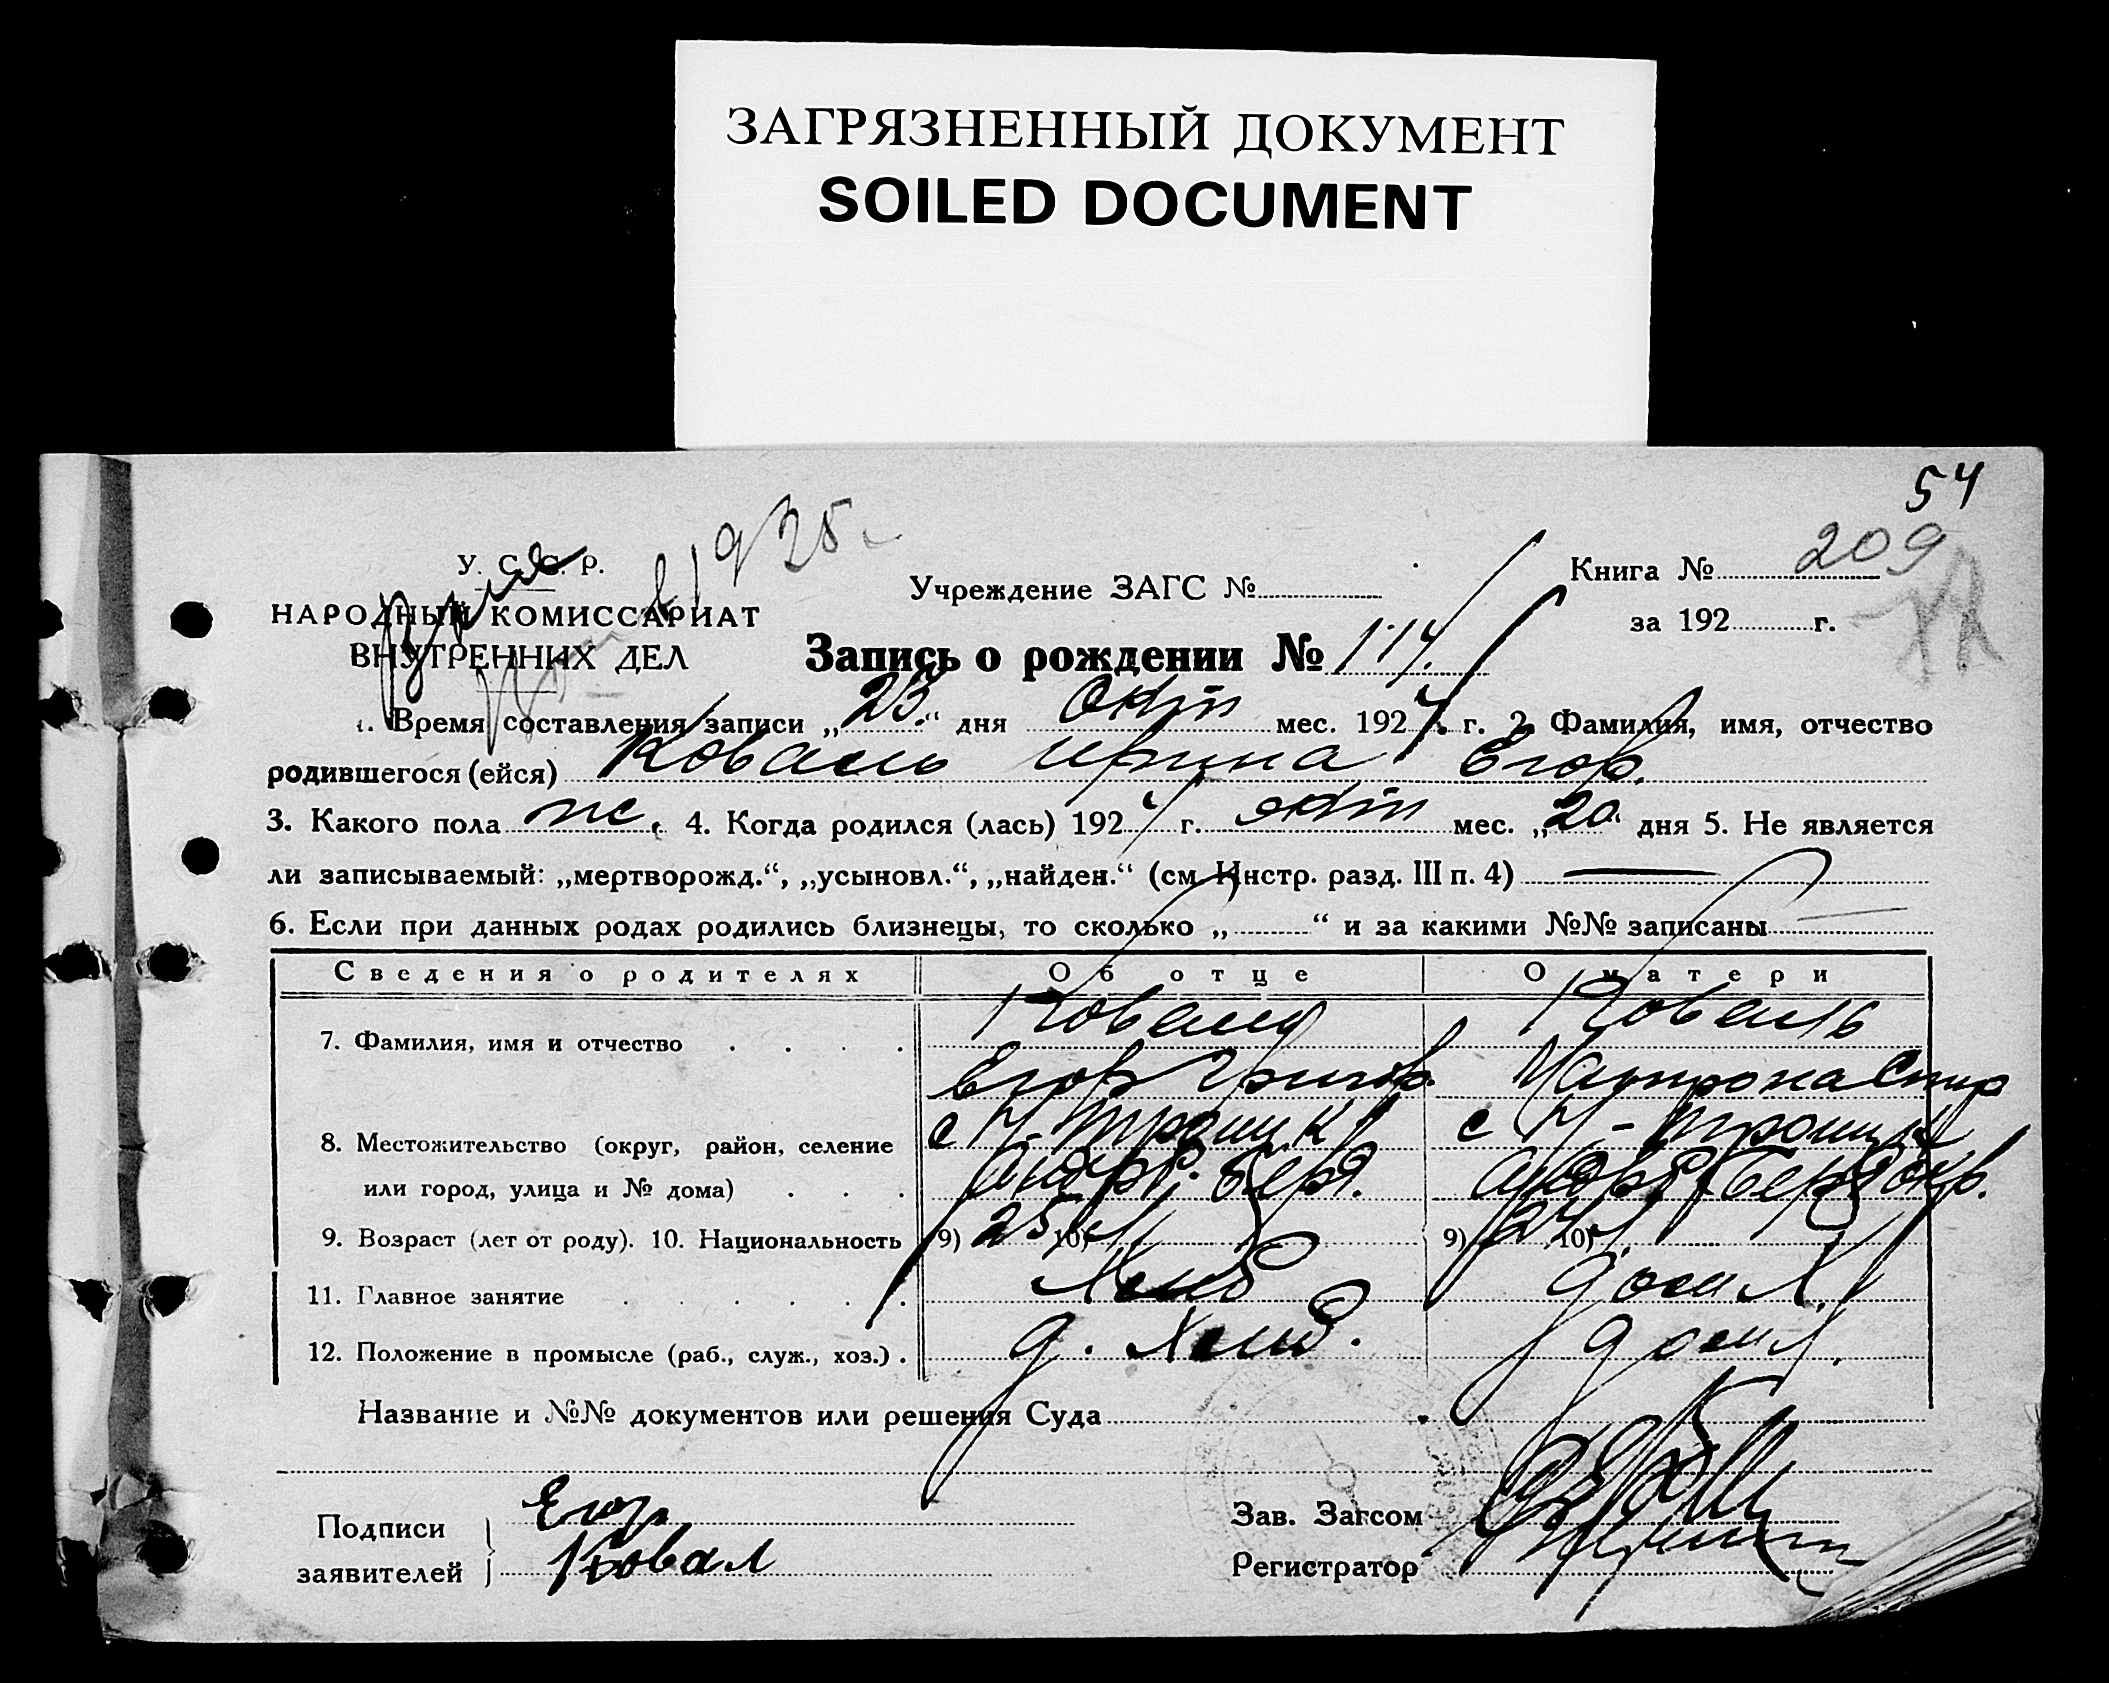 ЗАГРЯЗНЕННЫЙ ДОКУМЕНТ
SOILED DOCUMENT
54
У. С. С. Р.
НАРОДНЫЙ КОМИССАРИАТ
ВНУТРЕННИХ ДЕЛ
Учреждение ЗАГС №
Книга № 209
за 192 г.
Запись о рождении № 114.
1. Время составления записи „23.“ дня Окт мес. 1924 г. 2. Фамилия, имя, отчество
родившегося (ейся) Коваль Ирина Егор.
3. Какого пола же. 4. Когда родился (лась) 1924 г. окт мес. „20.“ дня 5. Не является
ли записываемый: „мертворожд.“, „усыновл.“, „найден.“ (см. Инстр. разд. III п. 4) —
6. Если при данных родах родились близнецы, то сколько „ “ и за какими №№ записаны
Сведения о родителях Об отце О матери
7. Фамилия, имя и отчество Коваль Коваль
Егор Григор. Матрона Спир
8. Местожительство (округ, район, селение с Н-Троицк с Н-Троицк
или город, улица и № дома) Андр. Берд. Берд окр.
9. Возраст (лет от роду). 10. Национальность 9) 25 10) 9) 24 10)
11. Главное занятие Хлеб дом х.
12. Положение в промысле (раб., служ., хоз.) д. Хлеб.
Название и №№ документов или решения Суда
Подписи заявителей Егор
Ковал
Зав. Загсом
Регистратор